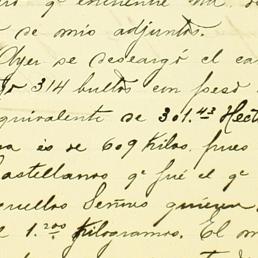 se mis adjuntos.
Ayer se descargó el ca
314 bultos con peso
equivalente de 301.43 Hect
a és de 609 Kilos, pues
Castellanos qe fué el qe
quellos Señores quieren
e 1.200 Kilogramos. El m